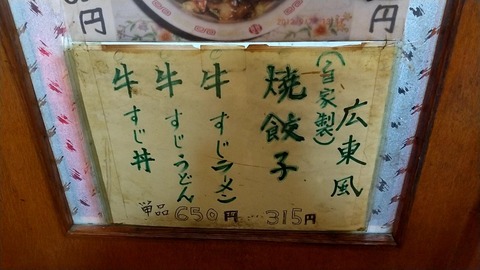 円
円
広東風
(自家製)
焼餃子
牛すじラーメン
牛すじうどん
牛すじ丼
単品650円…315円